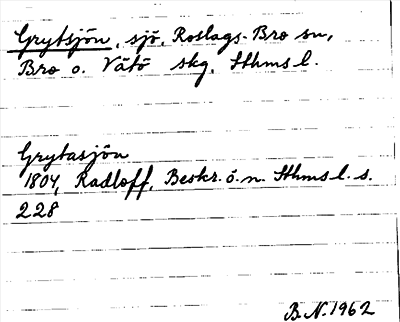 Grytsjön, sjö, Roslags-Bro sn,
Bro o. Vätö skg, Sthms l.
Grytasjön
1804, Radloff, Beskr. ö. n. Sthms l. s.
228
B.N. 1962